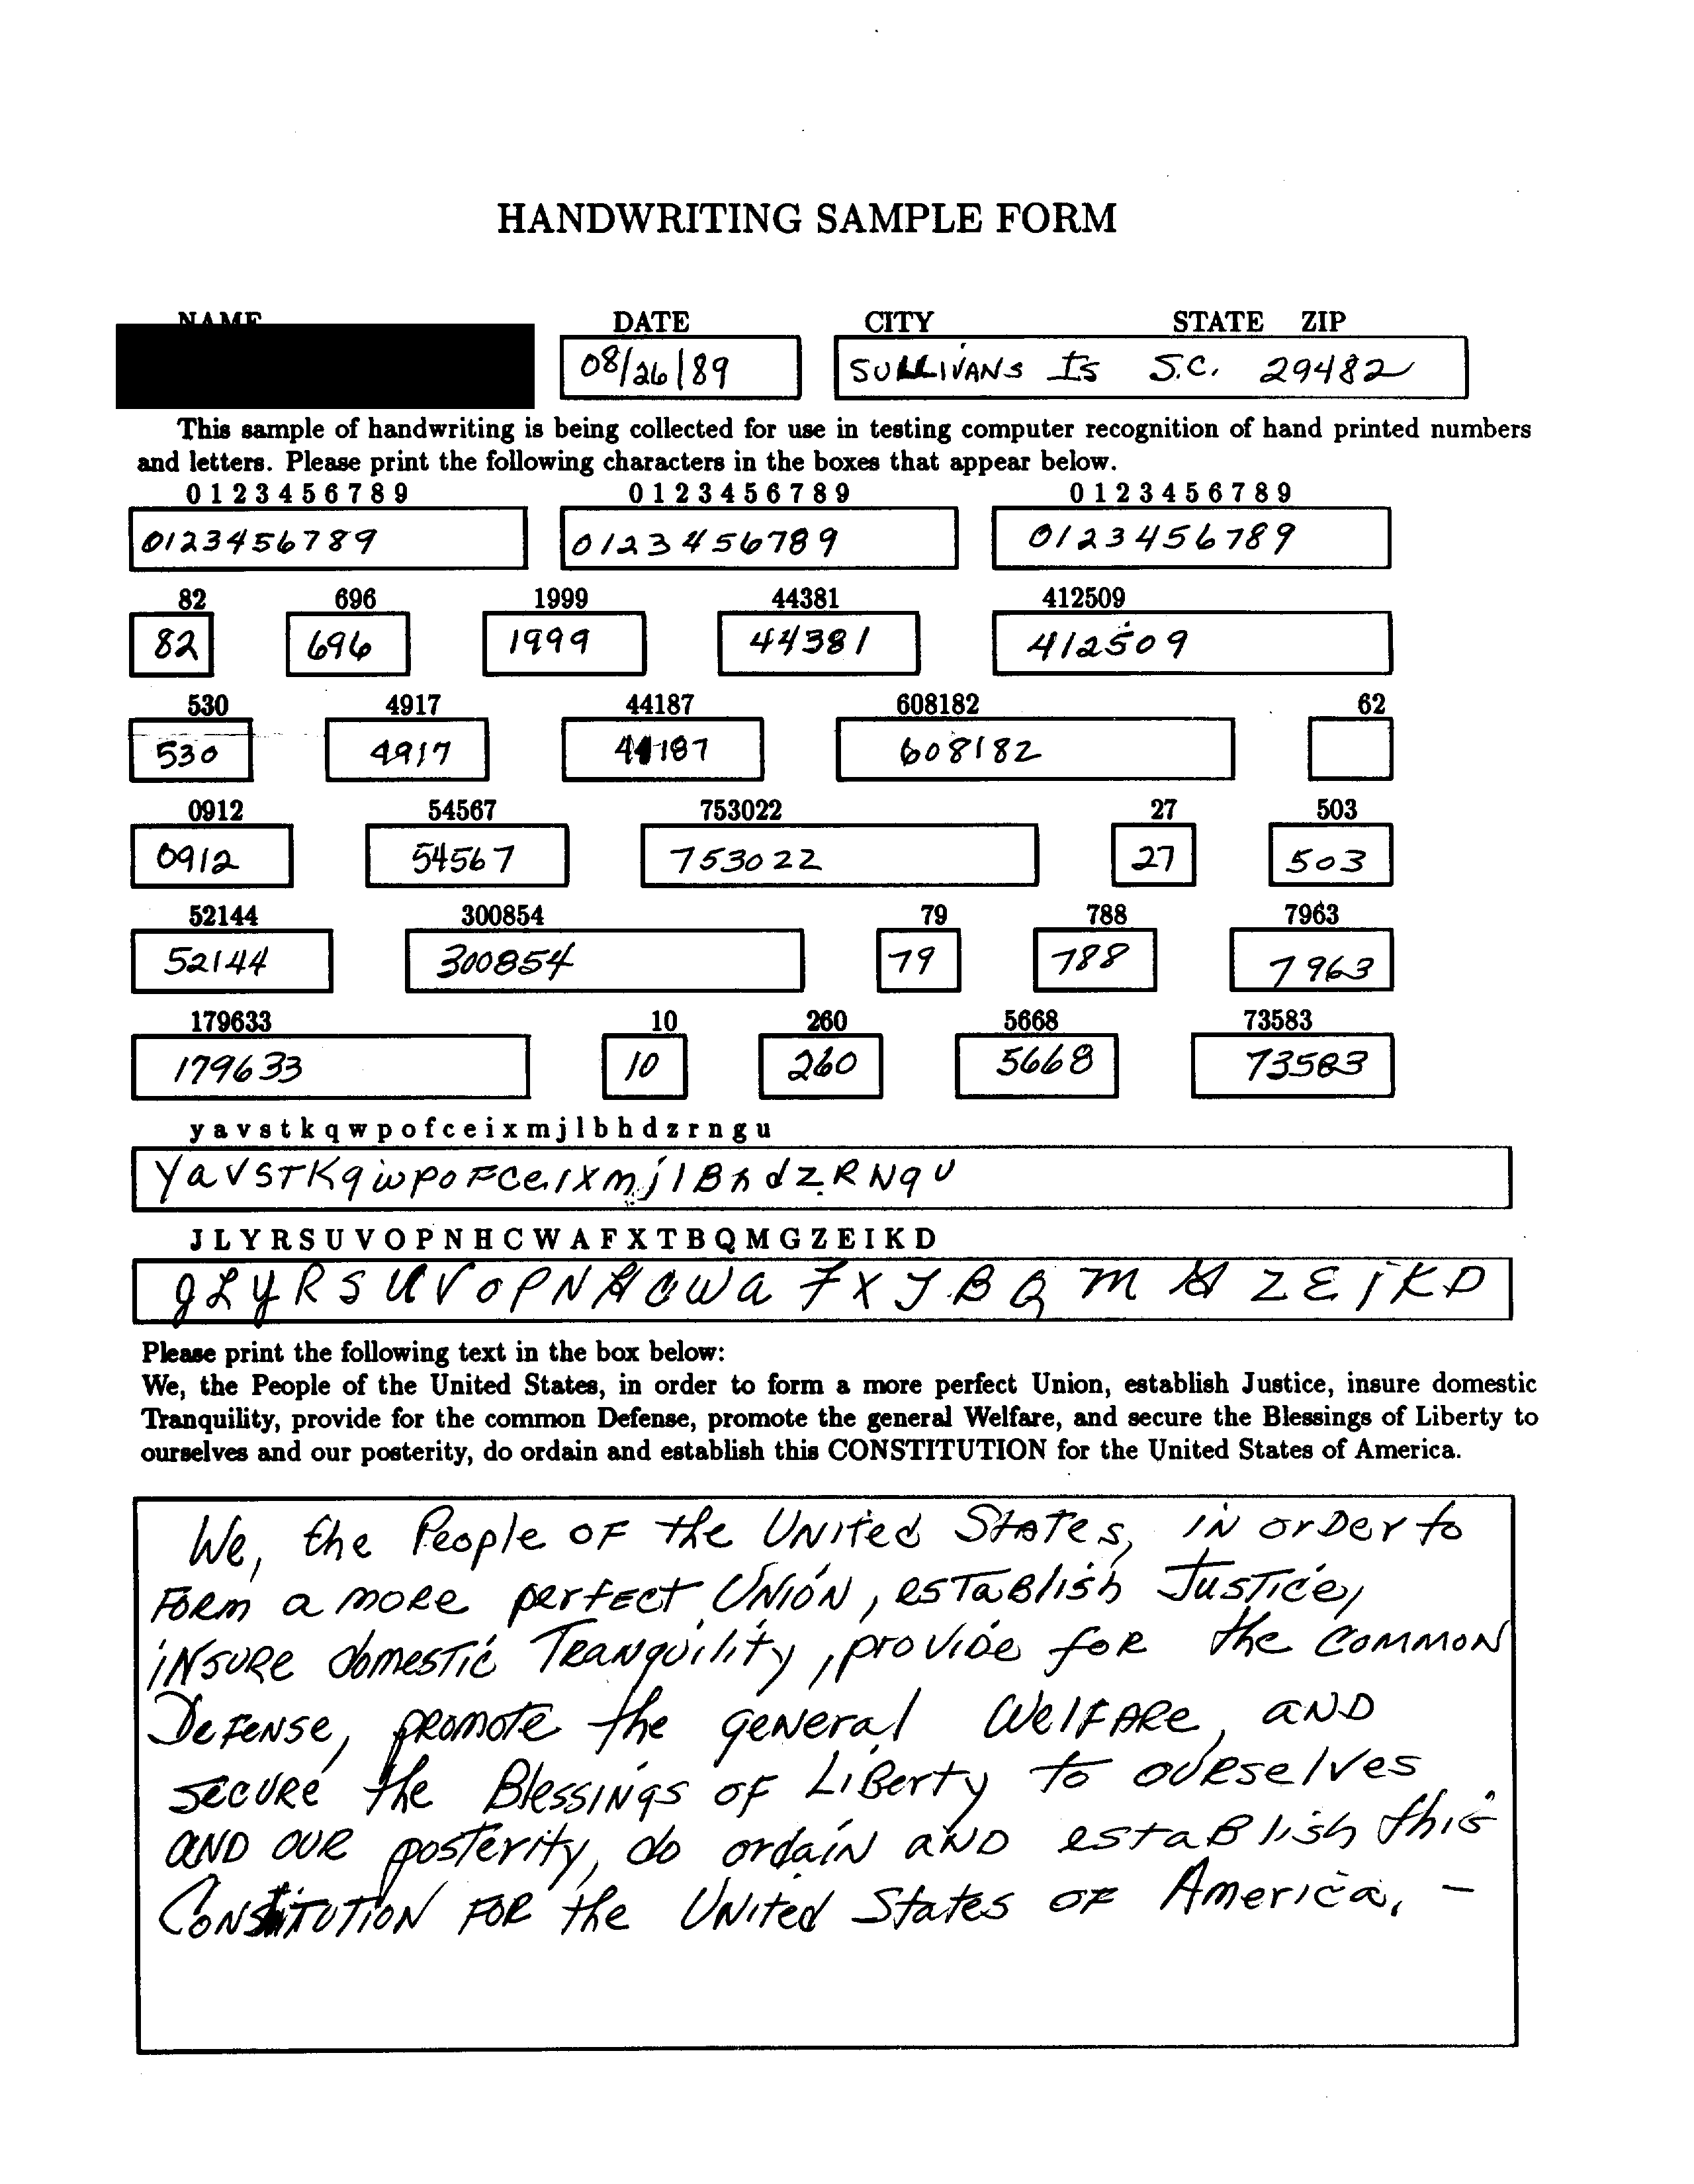 HANDWRITING SAMPLE FORM
NAME DATE CITY STATE ZIP
08/26/89 SULLIVANS Is S.C. 29482
This sample of handwriting is being collected for use in testing computer recognition of hand printed numbers
and letters. Please print the following characters in the boxes that appear below.
0 1 2 3 4 5 6 7 8 9 0 1 2 3 4 5 6 7 8 9 0 1 2 3 4 5 6 7 8 9
0123456789 0123456789 0123456789
82 696 1999 44381 412509
82 696 1999 44381 412509
530 4917 44187 608182 62
530 4917 44187 608182
0912 54567 753022 27 503
0912 54567 753022 27 503
52144 300854 79 788 7963
52144 300854 79 788 7963
179633 10 260 5668 73583
179633 10 260 5668 73583
y a v s t k q w p o f c e i x m j l b h d z r n g u
YaVSTKqwpoFCeixmjlBhdzRNgU
J L Y R S U V O P N H C W A F X T B Q M G Z E I K D
JLYRSUVOPNHCWaFXTBQMGZEIKD
Please print the following text in the box below:
We, the People of the United States, in order to form a more perfect Union, establish Justice, insure domestic
Tranquility, provide for the common Defense, promote the general Welfare, and secure the Blessings of Liberty to
ourselves and our posterity, do ordain and establish this CONSTITUTION for the United States of America.
We, the People OF the UNited States, iN orDer to
FORM a more perfect UNiON, esTaBlish JusTice,
iNSURe domesTic TRaNquility, provide foR the COMMON
DeFeNSe, pRomoTe the geNeral WelFARe, aND
secURe the BlessiNgs oF LiBerty to ouRselves
aND OUR posTerity, do ordaiN aND estaBlish this
CONSTiTUTiON FOR the UNited States OF America, -